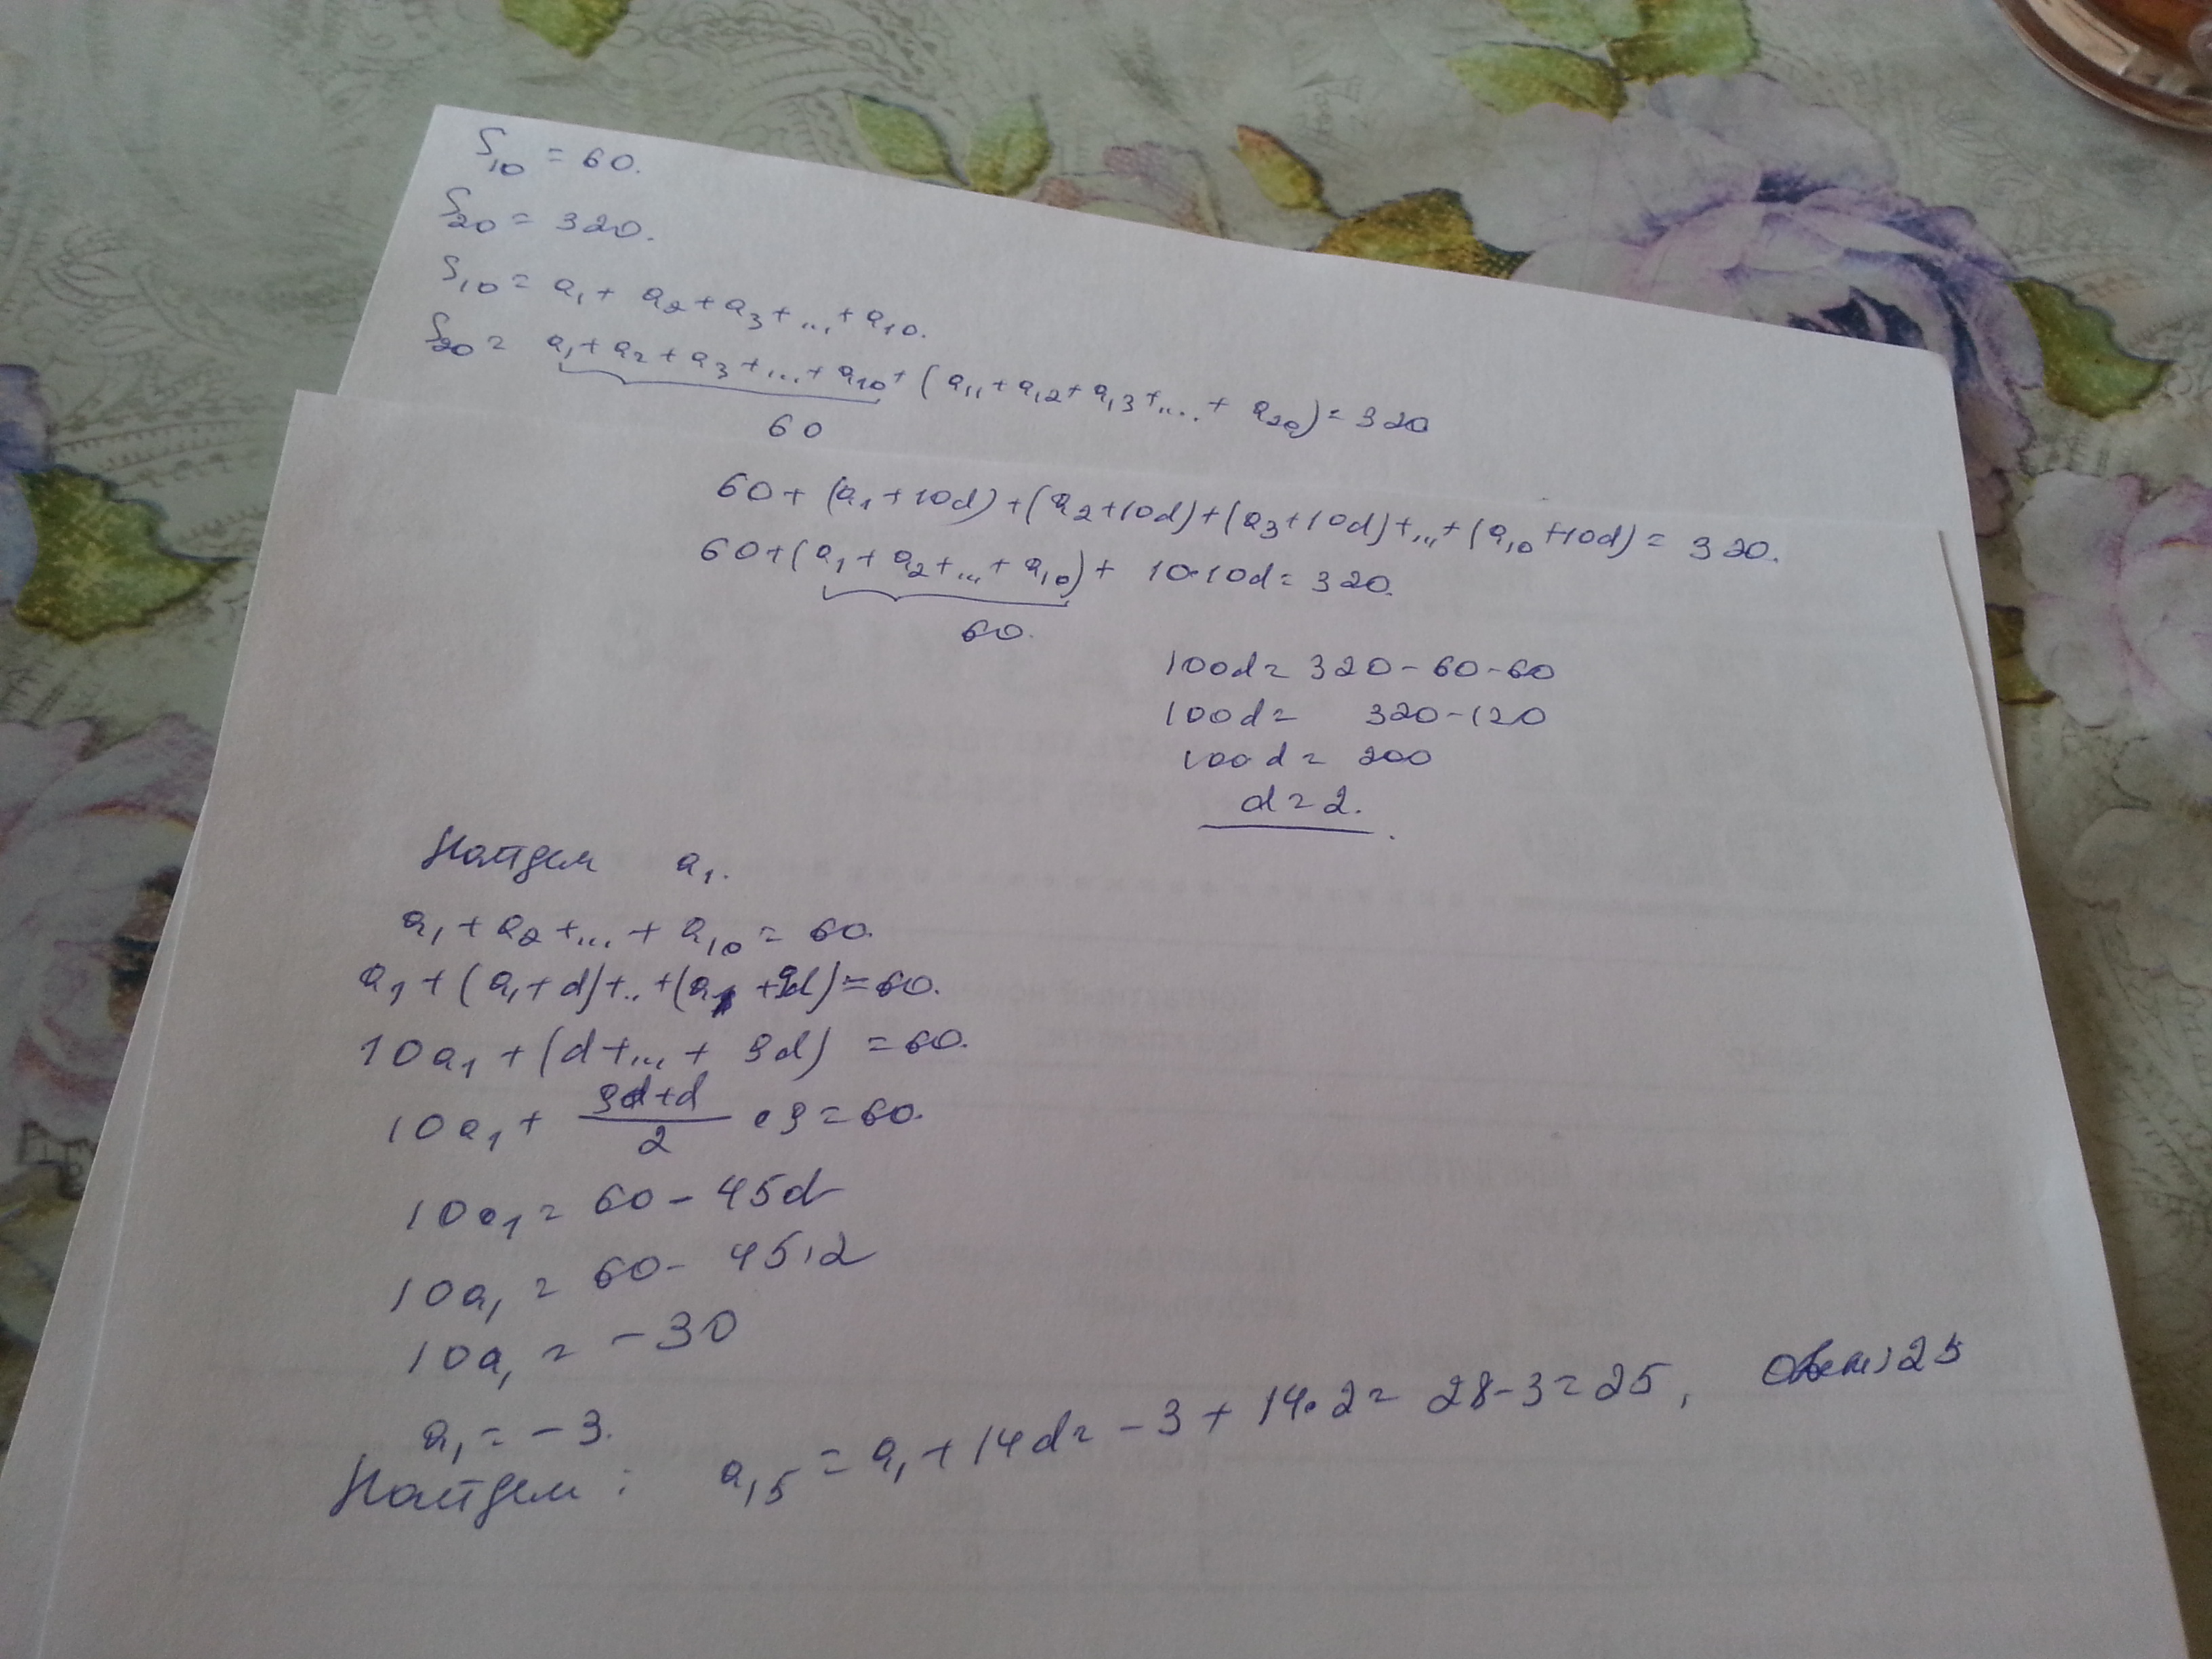 S₁₀ = 60.
S₂₀ = 320.
S₁₀ = a₁ + a₂ + a₃ + ... + a₁₀.
S₂₀ = a₁ + a₂ + a₃ + ... + a₁₀ + (a₁₁ + a₁₂ + a₁₃ + .... + a₂₀) = 320
60
60 + (a₁ + 10d) + (a₂ + 10d) + (a₃ + 10d) + ... + (a₁₀ + 10d) = 320.
60 + (a₁ + a₂ + ... + a₁₀) + 10·10d = 320.
60.
100d = 320 - 60 - 60
100d = 320 - 120
100d = 200
d = 2.
Найдем a₁.
a₁ + a₂ + ... + a₁₀ = 60.
a₁ + (a₁ + d) + .. + (a₁ + 9d) = 60.
10a₁ + (d + ... + 9d) = 60.
10a₁ + (9d + d)/2 · 9 = 60.
10a₁ = 60 - 45d
10a₁ = 60 - 45·2
10a₁ = -30
a₁ = -3.
Найдем: a₁₅ = a₁ + 14d = -3 + 14·2 = 28 - 3 = 25, Ответ: 25